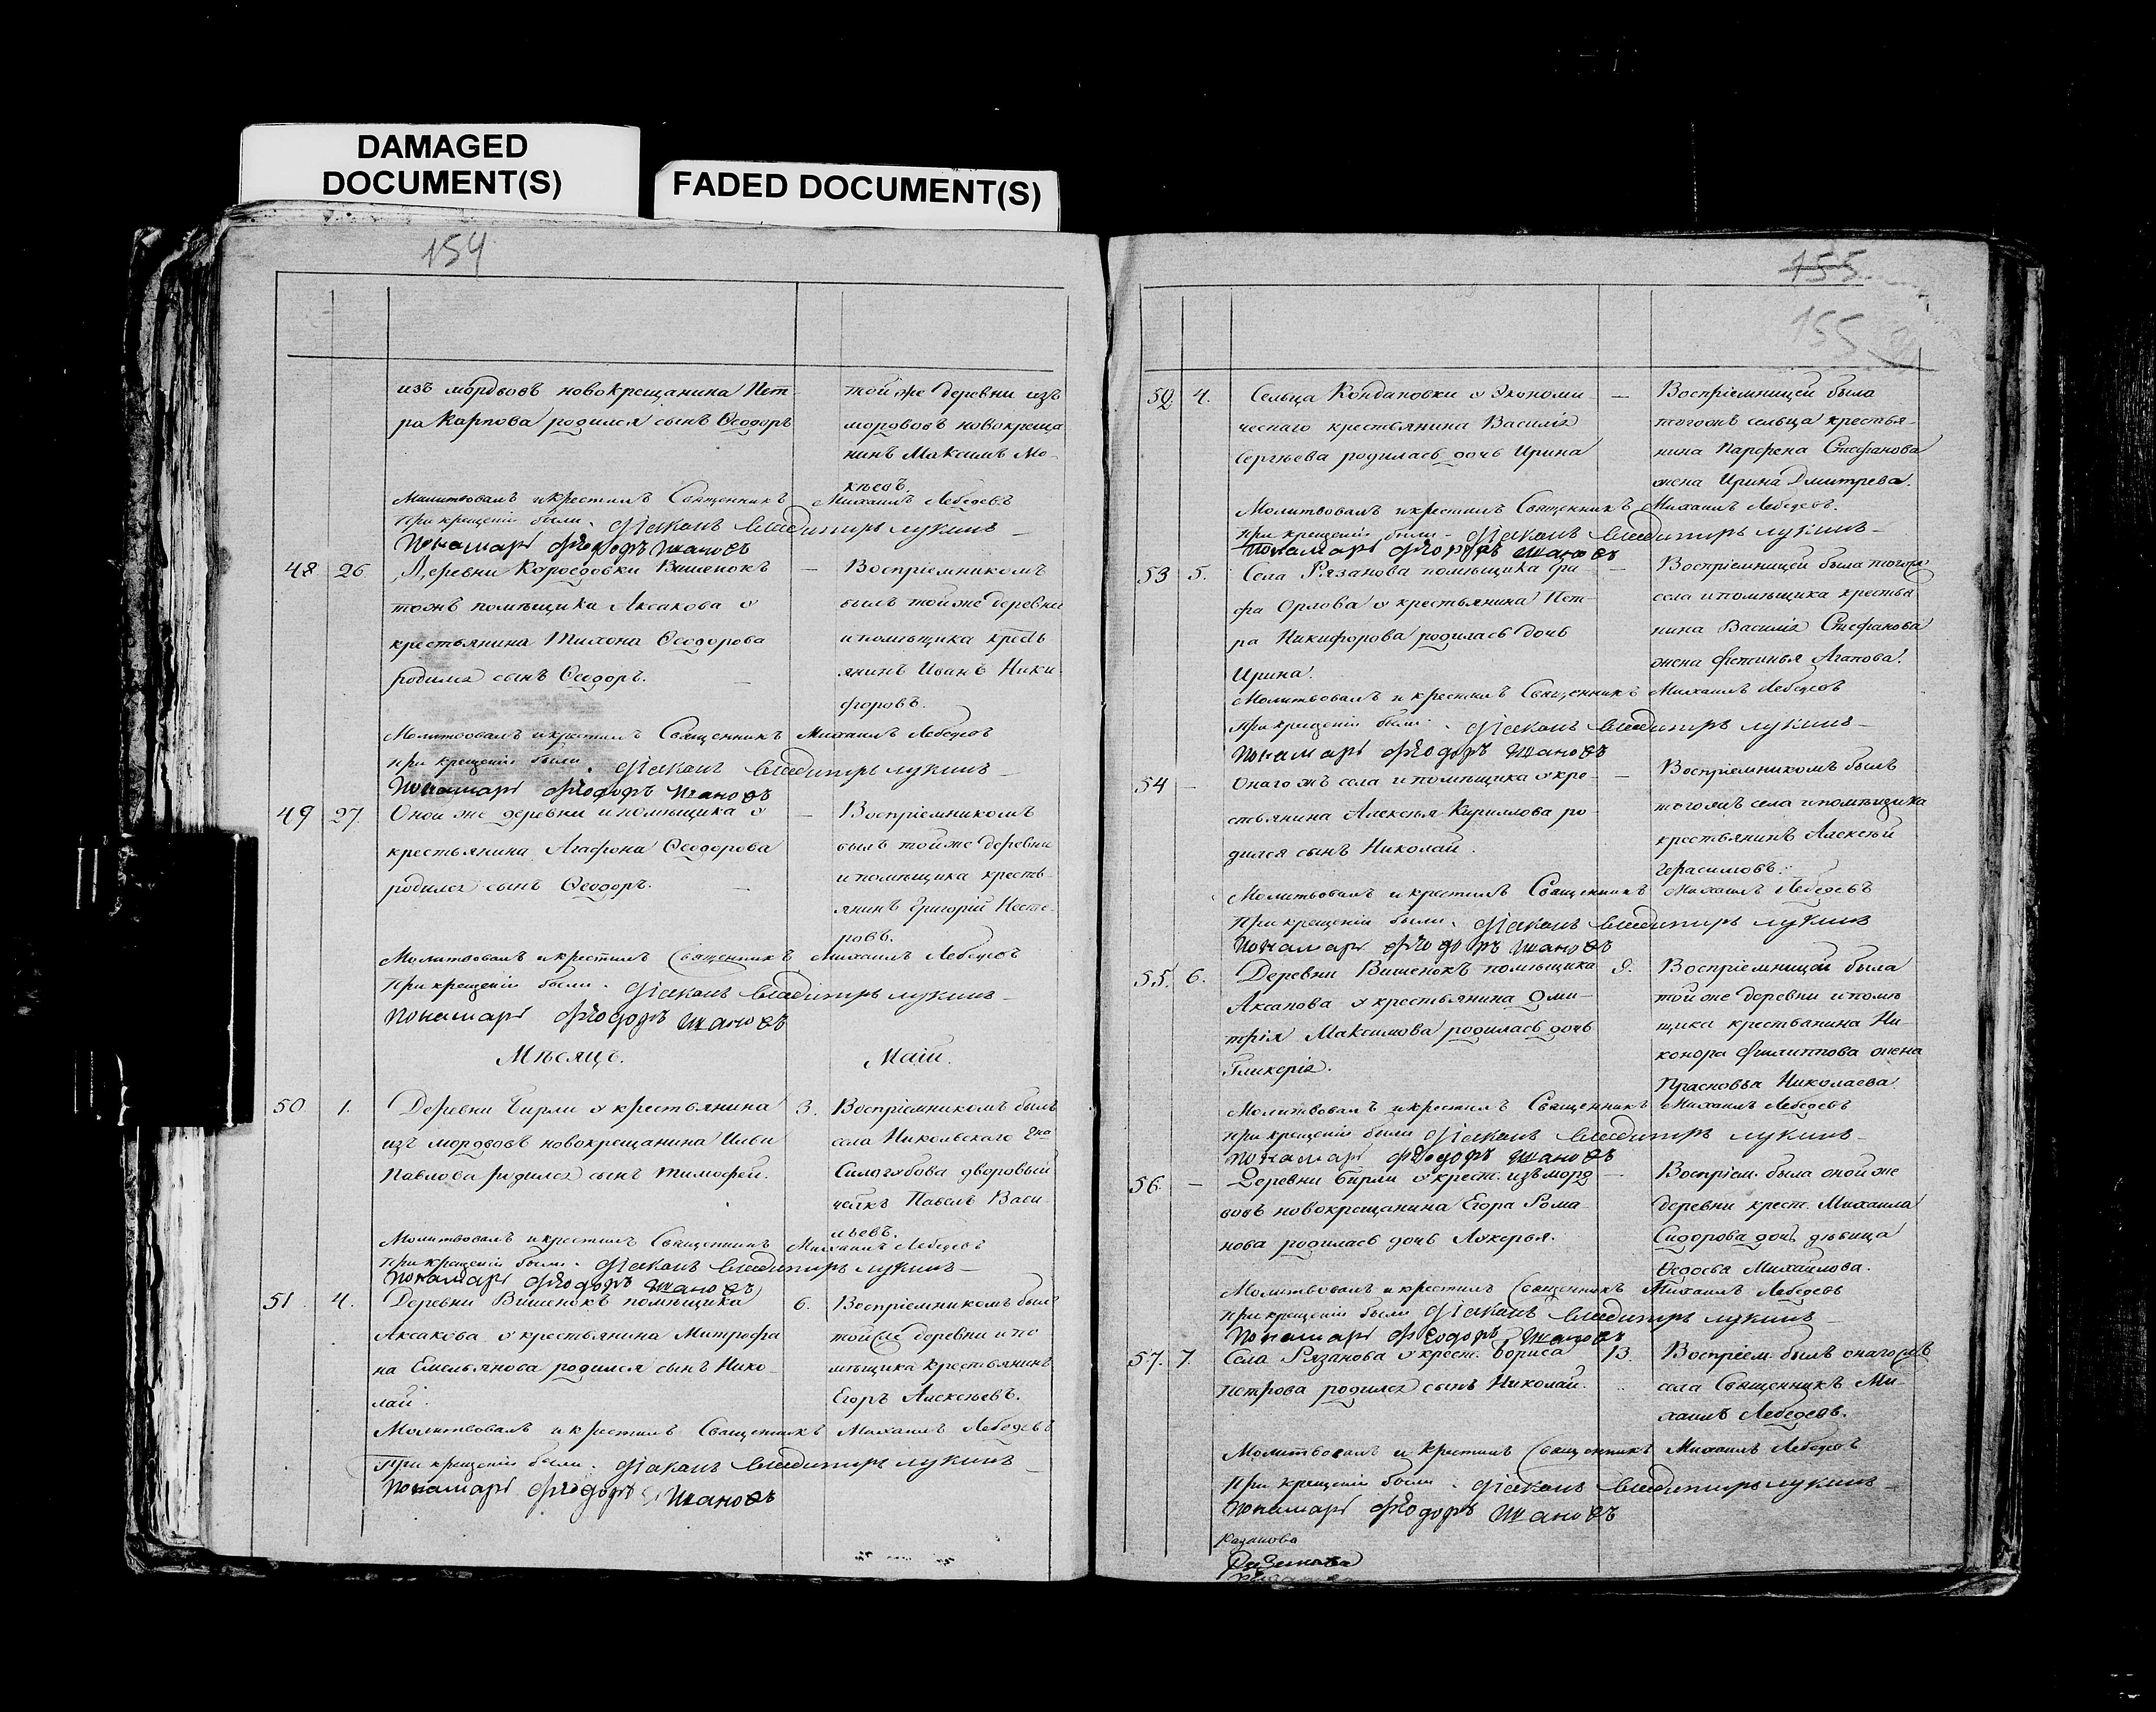 DAMAGED
DOCUMENT(S)
FADED DOCUMENT(S)
154
изъ мордвовъ новокрещанина Пет-
ра Карпова родился сынъ Ѳеодоръ
тойже деревни изъ
мордвовъ новокреща
нинъ Максимъ Мо-
кѣевъ.
Молитвовалъ и крестилъ Священникъ Михаилъ Лебедевъ
При крещеніи были. Діаконъ Владимиръ Лукинъ
Пономарь Ѳеодоръ
48 26. Деревни Вишенокъ
тожъ помѣщика Аксакова у
крестьянина Тихона Ѳеодорова
родился сынъ Ѳеодоръ.
Воспріемникомъ
былъ тойже деревни
и помѣщика кресть
янинъ Иванъ Ники
форовъ.
Молитвовалъ и крестилъ Священникъ Михаилъ Лебедевъ
При крещеніи были. Діаконъ Владимиръ Лукинъ
Пономарь Ѳеодоръ
49 27. Оной же деревни и помѣщика у
крестьянина Агафона Ѳеодорова
родился сынъ Ѳеодоръ.
Воспріемникомъ
былъ тойже деревни
и помѣщика кресть-
янинъ Григорій Несте-
ровъ.
Молитвовалъ и крестилъ Священникъ Михаилъ Лебедевъ
При крещеніи были. Діаконъ Владимиръ Лукинъ
Пономарь Ѳеодоръ
Мѣсяцъ. Маій.
50 1. Деревни Бирли у крестьянина 3.
изъ мордвовъ новокрещанина Ильи
Павлова родился сынъ Тимофей.
Воспріемникомъ былъ
села Никольскаго
дворовый
Павелъ Васи
льевъ.
Молитвовалъ и крестилъ Священникъ Михаилъ Лебедевъ
При крещеніи были. Діаконъ Владимиръ Лукинъ
Пономарь Ѳеодоръ
51. 4. Деревни Вишенокъ помѣщика 6.
Аксакова у крестьянина Митрофа
на Емельянова родился сынъ Нико-
лай.
Воспріемникомъ былъ
тойже деревни и по
мѣщика крестьянинъ
Егоръ Алексѣевъ.
Молитвовалъ и крестилъ Священникъ Михаилъ Лебедевъ
При крещеніи были. Діаконъ Владимиръ Лукинъ
Пономарь Ѳеодоръ
155
155
52 4. Сельца Кондаковки у Экономи
ческаго крестьянина Василія
Сергѣева родилась дочь Ирина
Воспріемницей была
тогожъ сельца крестья-
нина Парфена Стефанова
жена Ирина Дмитрева.
Молитвовалъ и крестилъ Священникъ Михаилъ Лебедевъ.
При крещеніи были. Діаконъ Владимиръ Лукинъ
Пономарь Ѳеодоръ
53 5. Села Рязанова помѣщика Гра
фа Орлова у крестьянина Пет-
ра Никифорова родилась дочь
Ирина.
Воспріемницей была тогожъ
села и помѣщика крестья
нина Василія Стефанова
жена Фетинья Агапова.
Молитвовалъ и крестилъ Священникъ Михаилъ Лебедевъ
При крещеніи были. Діаконъ Владимиръ Лукинъ
Пономарь Ѳеодоръ
54 Онагожъ села и помѣщика у кре-
стьянина Алексѣя Кирилова ро-
дился сынъ Николай.
Воспріемникомъ былъ
тогожъ села и помѣщика
крестьянинъ Алексѣй
Герасимовъ.
Молитвовалъ и крестилъ Священникъ Михаилъ Лебедевъ
При крещеніи были. Діаконъ Владимиръ Лукинъ
Пономарь Ѳеодоръ
55. 6. Деревни Вишенокъ помѣщика
Аксакова у крестьянина Дми-
трія Максимова родилась дочь
Гликерія.
Воспріемницей была
тойже деревни и помѣ
щика крестьянина Ни-
конора Филиппова жена
Прасковья Николаева
Молитвовалъ и крестилъ Священникъ Михаилъ Лебедевъ
При крещеніи были Діаконъ Владимиръ Лукинъ
Пономарь Ѳеодоръ
56. Деревни Бирли у крест. изъ морд
вовъ новокрещанина Егора Рома-
нова родилась дочь Лукерья.
Воспріем. была оной же
деревни крест. Михаила
Сидорова дочь дѣвица
Ѳедосья Михайлова.
Молитвовалъ и крестилъ Священникъ Михаилъ Лебедевъ
При крещеніи были Діаконъ Владимиръ Лукинъ
Пономарь Ѳеодоръ
57. 7. Села Рязанова у крест. Бориса 13.
Петрова родился сынъ Николай.
Воспріем. былъ онагожъ
села Священникъ Ми-
хаилъ Лебедевъ.
Молитвовалъ и крестилъ Священникъ Михаилъ Лебедевъ
При крещеніи были. Діаконъ Владимиръ Лукинъ
Пономарь Ѳеодоръ